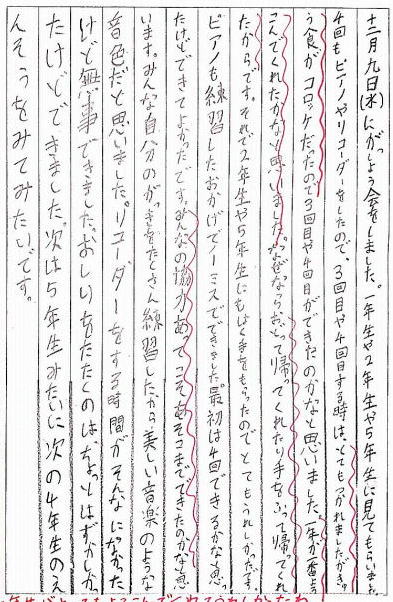 十二月九日(水)にがっしょう会をしました。一年生や2年生や5年生に見てもらいました。
4回もピアノやリコーダーをしたので、3回目や4回目する時は、とてもつかれましたが、き
う食がコロッケだったので3回目や4回目ができたのかなと思いました。一年が一番よろ
こんでくれたかなと思いました。なぜならおどって帰ってくれたり手をふって帰ってくれ
たからです。それで2年生や5年生にもはく手をもらったのでとてもうれしかったです。
ピアノも練習したおかげでノーミスでできました。最初は4回できるかなと思っ
たけどできてよかったです。みんなの協力あってこそあそこまでできたのかなと思
います。みんな自分のがっきをたくさん練習したから美しい音楽のような
音色だと思いました。リコーダーをする時間がそんなになかった
けど無事できました。おしりをたたくのはちょっとはずかしかっ
たけどできました。次は5年生みたいに次の4年生のえ
んそうをみてみたいです。